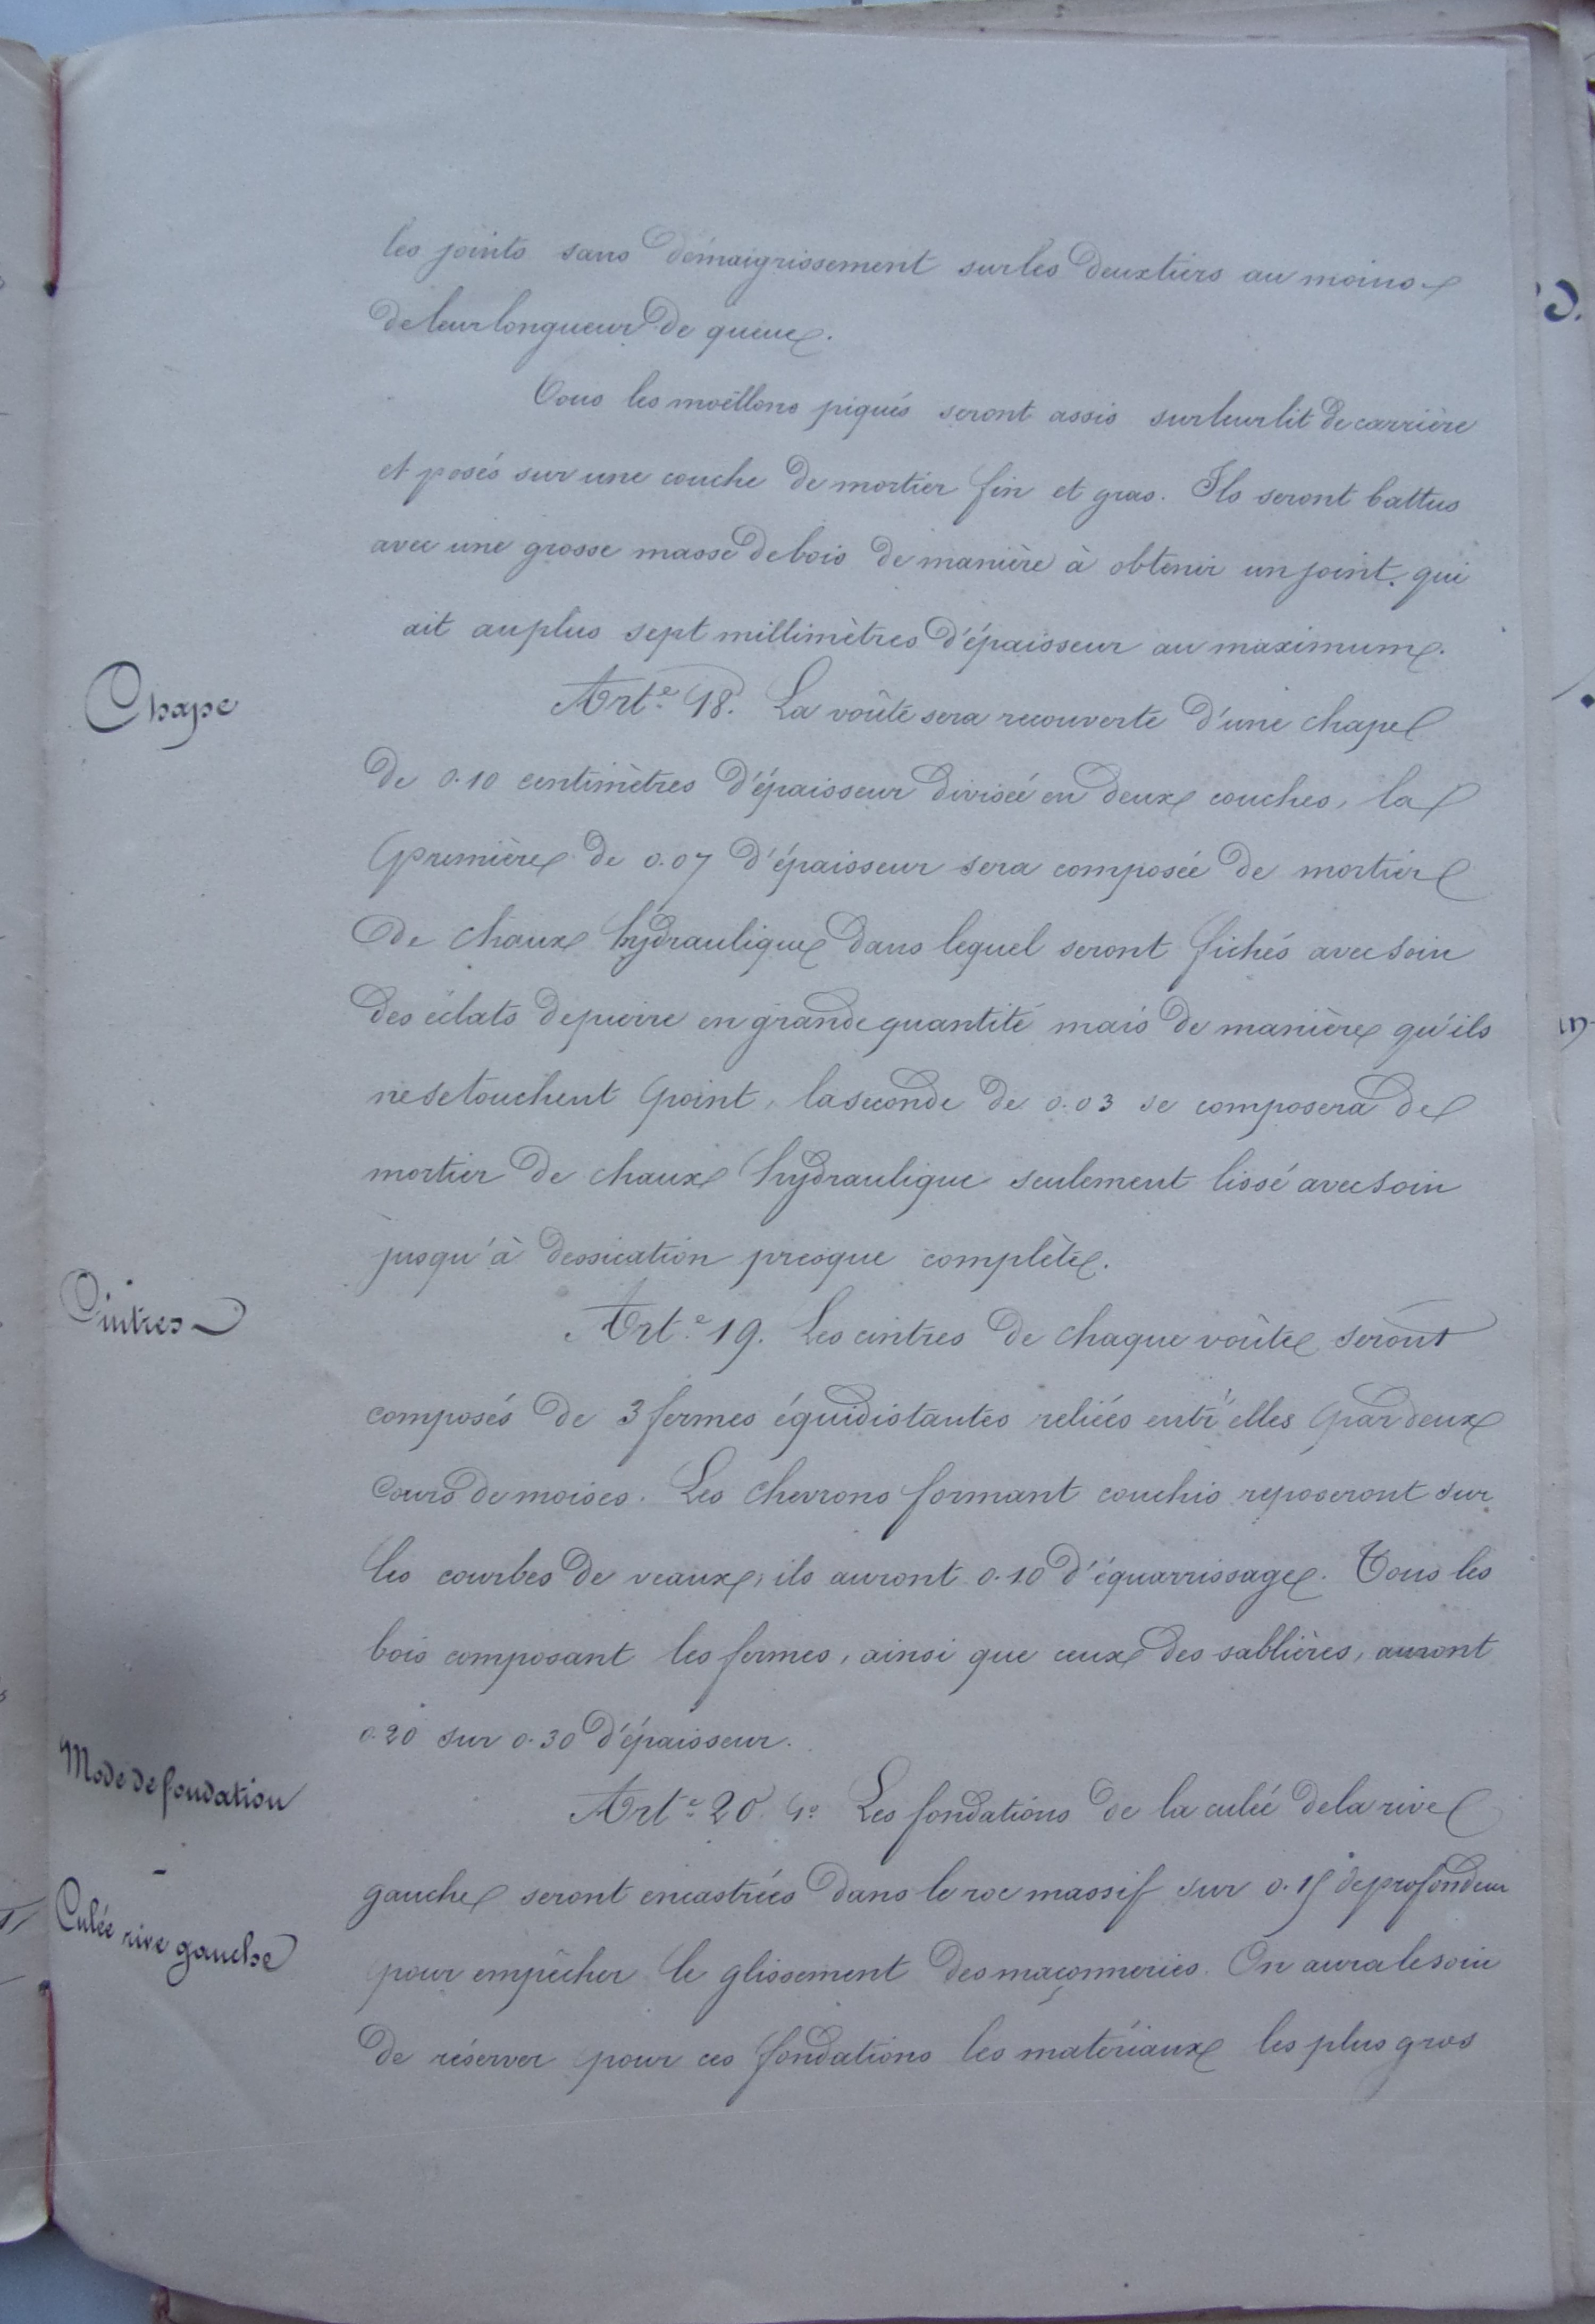 les joints sans démaigrissement sur les deux tiers au moins
de leur longueur de queue.
Tous les moëllons piqués seront assis sur leur lit de carrière
et posés sur une couche de mortier fin et gras. Ils seront battus
avec une grosse masse de bois de manière à obtenir un joint qui
ait au plus sept millimètres d'épaisseur au maximum.
Chape
Art.e 18. La voûte sera recouverte d'une chape
de 0.10 centimètres d'épaisseur divisée en deux couches, la
première de 0.07 d'épaisseur sera composée de mortier
de chaux hydraulique dans lequel seront fichés avec soin
des éclats de pierre en grande quantité mais de manière qu'ils
ne se touchent point, la seconde de 0.03 se composera de
mortier de chaux hydraulique seulement lissé avec soin
jusqu'à dessication presque complète.
Cintres
Art.e 19. Les cintres de chaque voûte seront
composés de 3 fermes équidistantes reliées entr'elles par deux
cours de moises. Les chevrons formant couchis reposeront sur
les courbes de veaux, ils auront 0.10 d'équarrissage. Tous les
bois composant les fermes, ainsi que ceux des sablières, auront
0.20 sur 0.30 d'épaisseur.
Mode de fondation
Art.e 20. 1o Les fondations de la culée de la rive
Culée rive gauche
gauche seront encastrées dans le roc massif sur 0.15 de profondeur
pour empêcher le glissement des maçonneries. On aura le soin
de réserver pour ces fondations les matériaux les plus gros